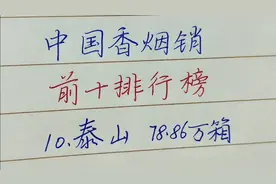 中国香烟销
前十排行榜
10.泰山 78.86万箱